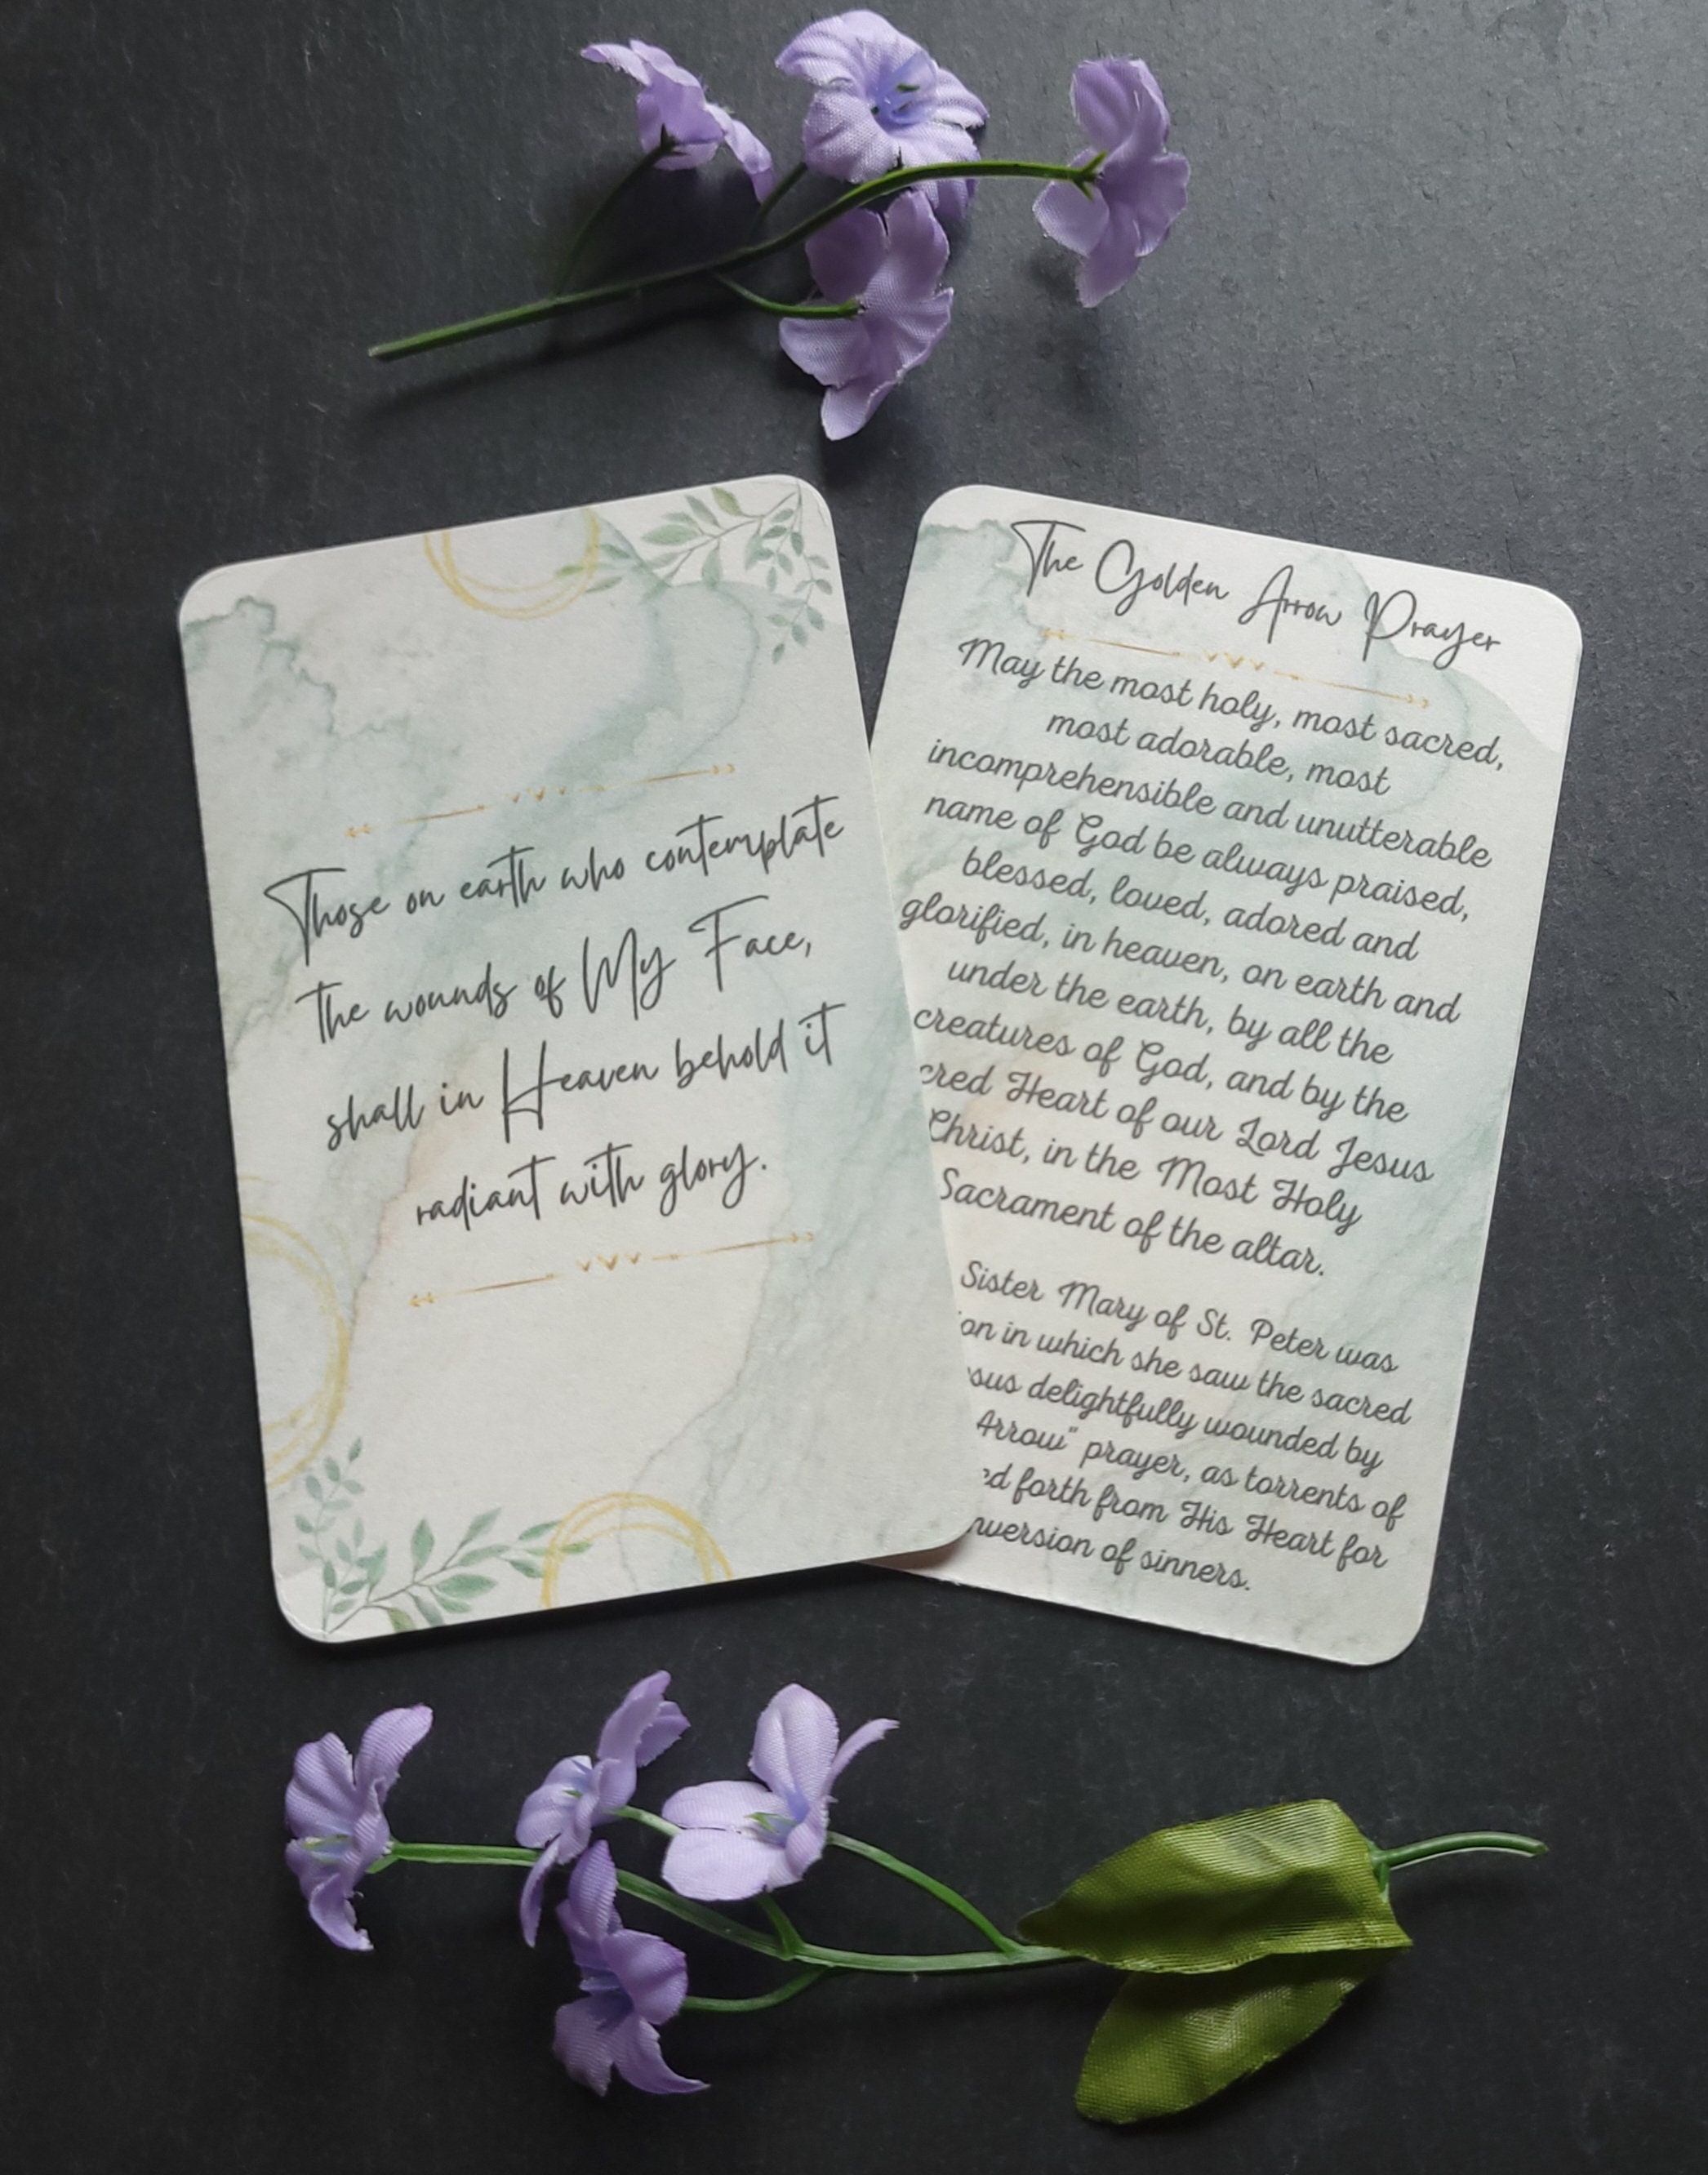 Those on earth who contemplate
the wounds of My Face,
shall in Heaven behold it
radiant with glory.
The Golden Arrow Prayer
May the most holy, most sacred,
most adorable, most
incomprehensible and unutterable
name of God be always praised,
blessed, loved, adored and
glorified, in heaven, on earth and
under the earth, by all the
creatures of God, and by the
Heart of our Lord Jesus
Christ, in the Most Holy
Sacrament of the altar.
Sister Mary of St. Peter was
in which she saw the sacred
delightfully wounded by
Arrow" prayer, as torrents of
forth from His Heart for
of sinners.